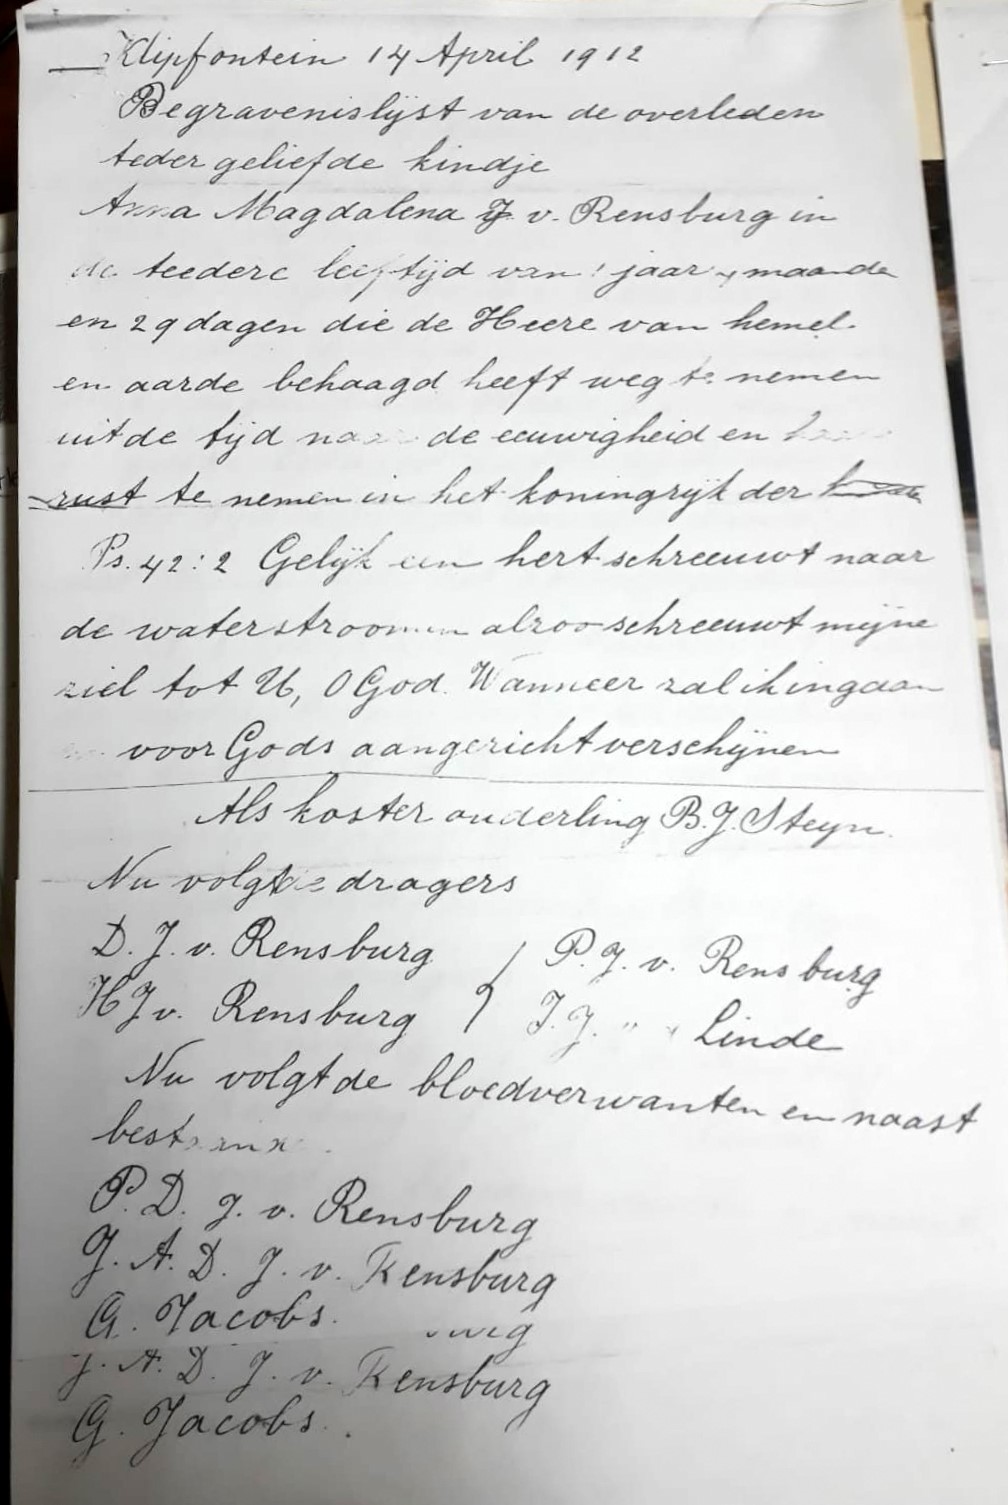 Klipfontein 14 April 1912
Begravenislijst van de overleden
teder geliefde kindje
Anna Magdalena J v. Rensburg in
de teedere leeftijd van 1 jaar 4 maande
en 29 dagen die de Heere van hemel
en aarde behaagd heeft weg te nemen
uit de tijd naar de eeuwigheid en
rust te nemen in het koningrijk der
Ps. 42:2 Gelijk een hert schreeuwt naar
de waterstroomen alzoo schreeuwt mijne
ziel tot U, O God. Wanneer zal ik ingaan
voor Gods aangezicht verschijnen
Als koster ouderling B.J. Steyn.
Nu volgt de dragers
D. J. v. Rensburg } P. J. v. Rensburg
H J v. Rensburg } J. J. " " Linde
Nu volgt de bloedverwanten en naast
P. D. J. v. Rensburg
J. A. D. J. v. Rensburg
G. Jacobs.
J. A. D. J. v. Rensburg
G. Jacobs.